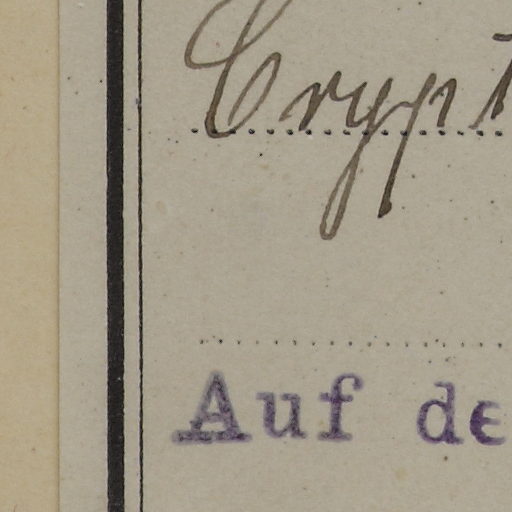 Crypt
Auf de